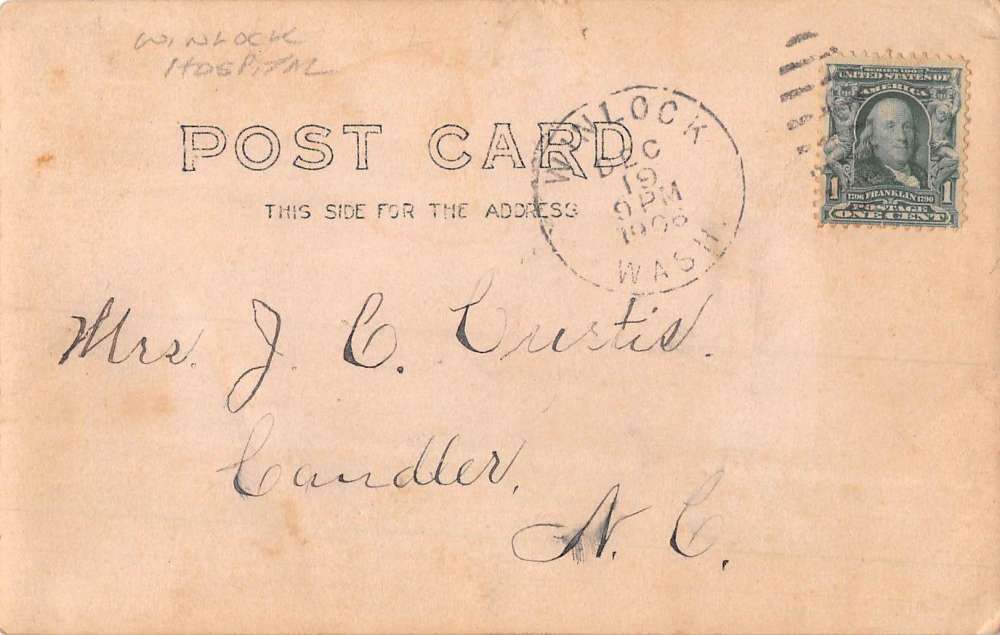 WINLOCK
HOSPITAL
POST CARD
THIS SIDE FOR THE ADDRESS
WINLOCK
DEC
19
9 PM
1906
WASH.
SERIES 1902
UNITED STATES OF
AMERICA
1 1706 FRANKLIN 1790 1
POSTAGE
ONE CENT
Mrs. J. C. Curtis.
Candler,
N. C.